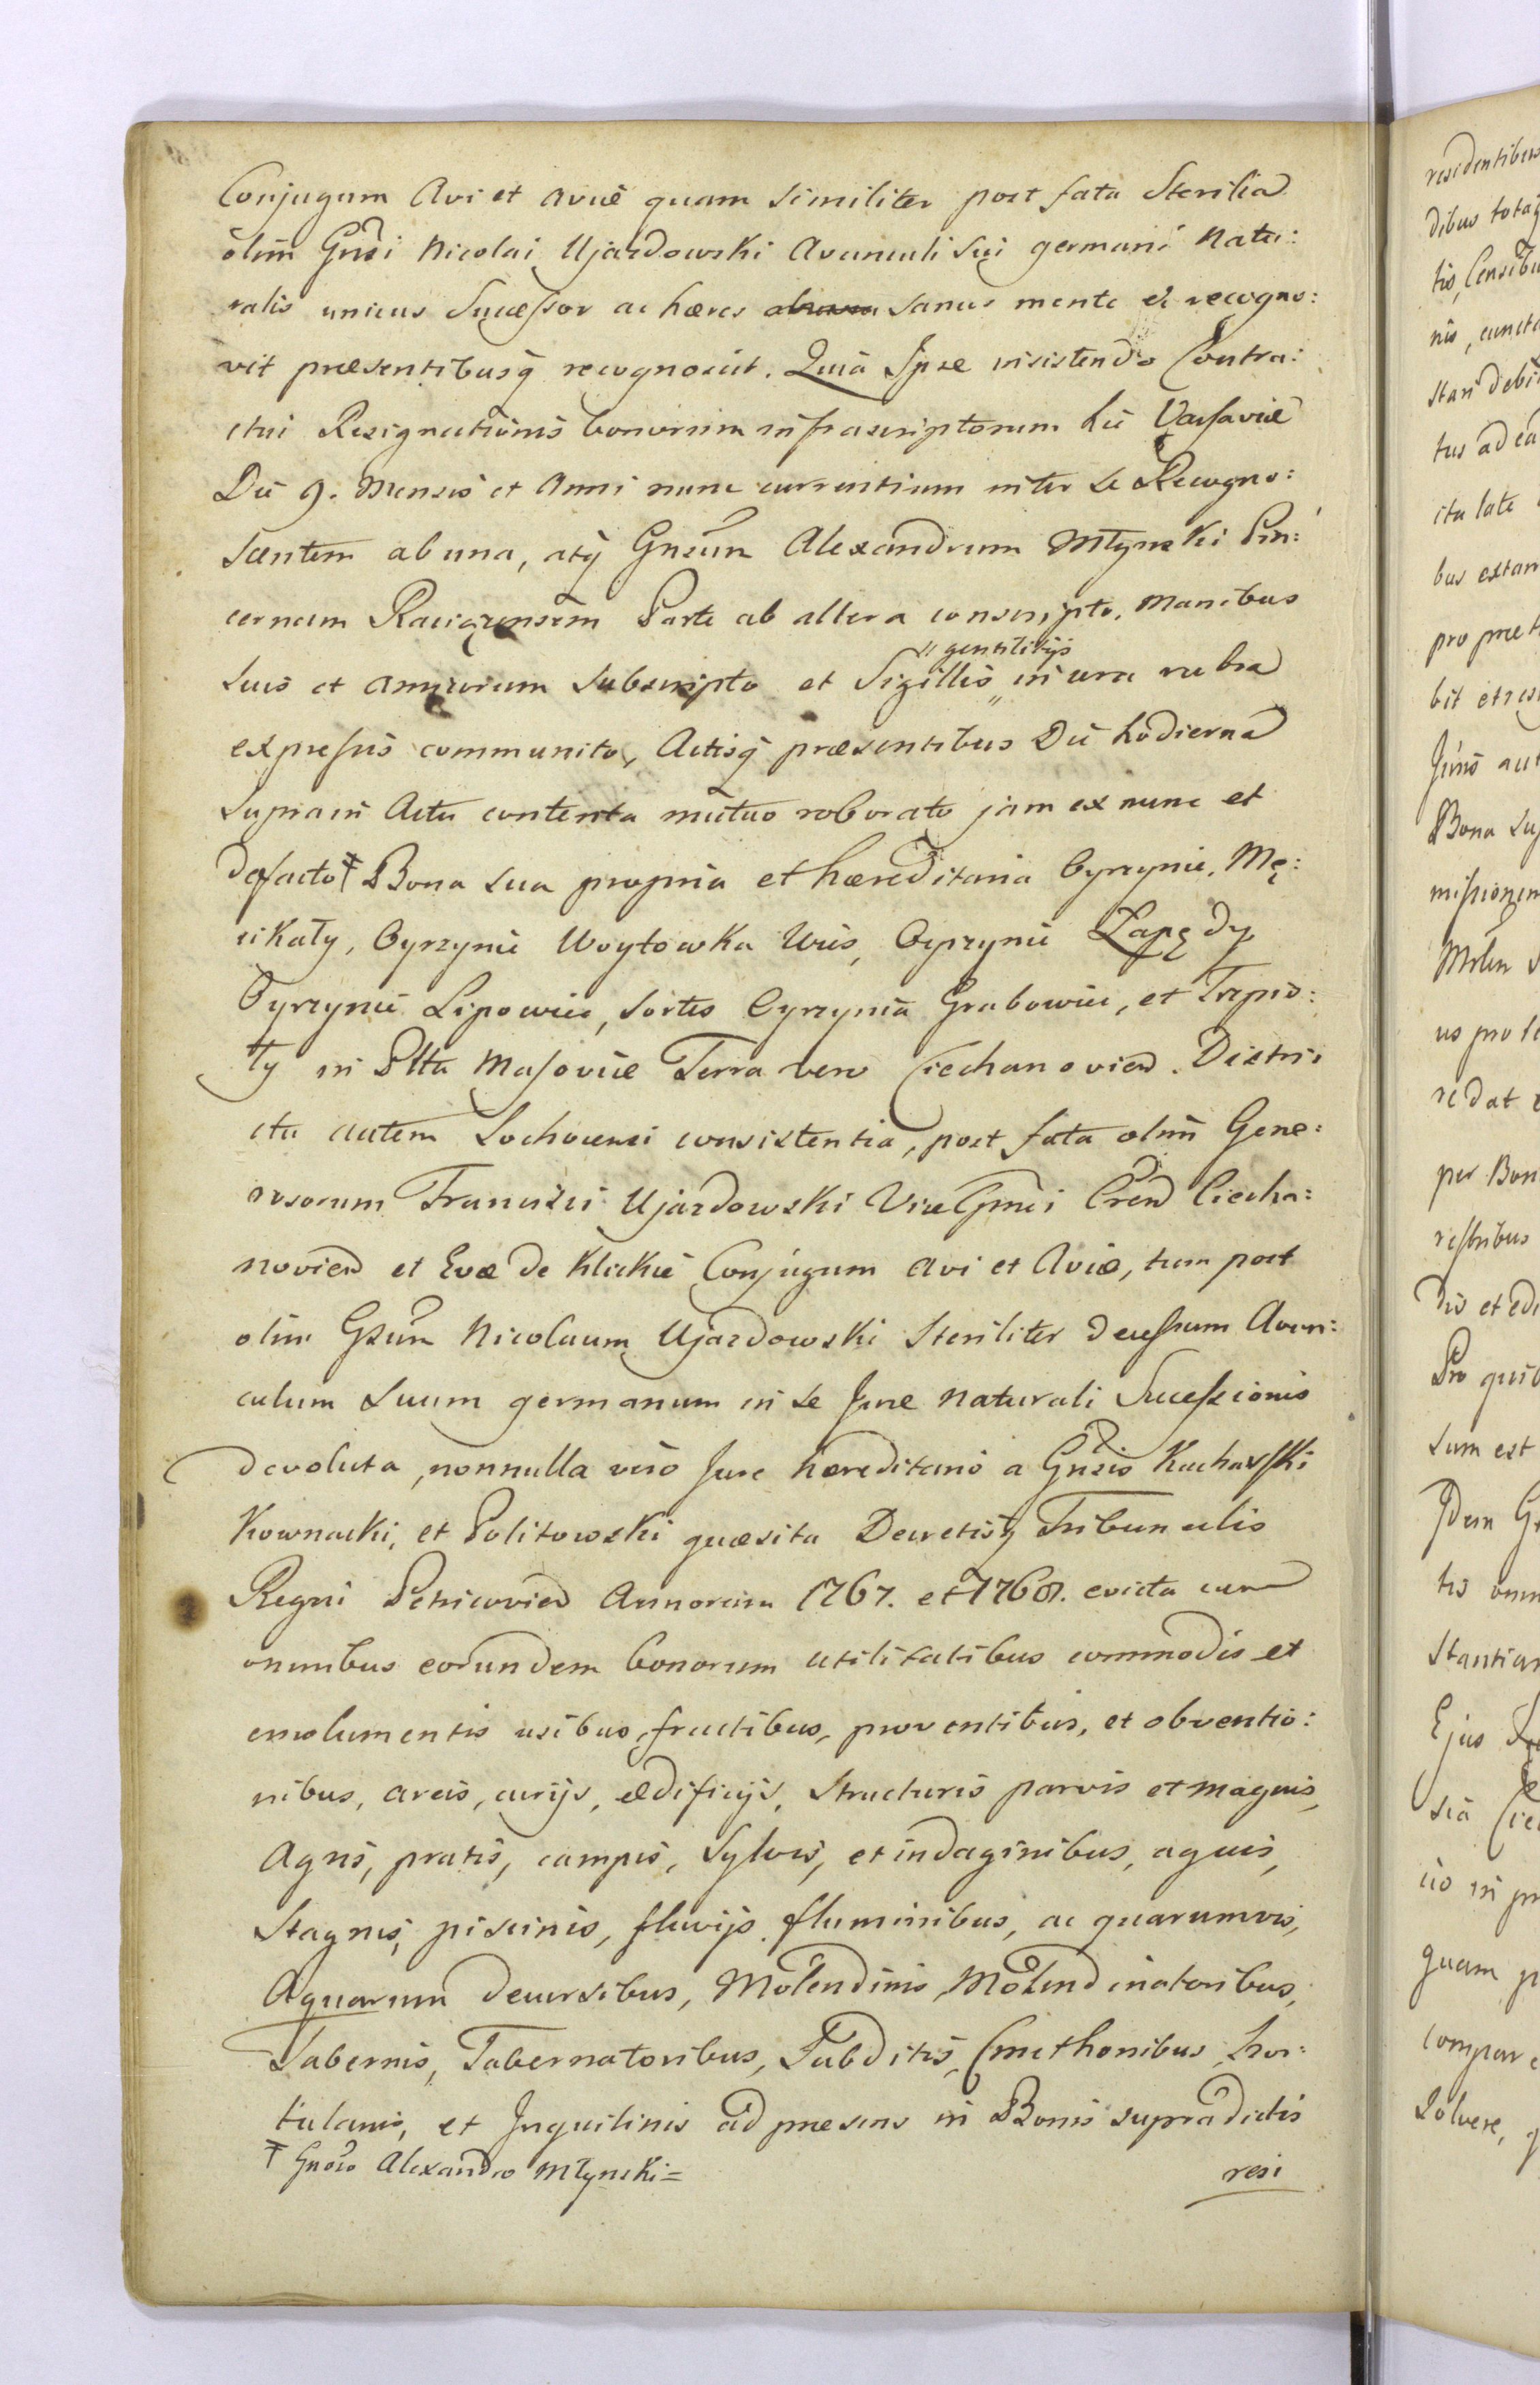 Conjugum Avi et Aviæ quam similiter post fata Sterilia
olim Gnsi Nicolai Ujazdowski Avunculi sui germani Natu:
ralis unicus Sucessor ac hæres sanus mente &c recogno:
vit præsentibusq recognoscit. Quia Ipse insistendo Contra:
ctui Resignationis bonorum infrascriptorum hic Varsaviæ
Die 9. Mensis et Anni nunc currentium inter se Recogno:
scentem ab una, atq Gnsum Alexandrum Młynski Pin:
cernam Raciązensem Parte ab altera conscripto, Manibus
suis et amicorum subscripto et Sigillis "gentilitijs in cera rubra
expressis communito, Actisq præsentibus Die hodierna
supra in Actu contenta mutuo roborato jam ex nunc et
defacto ŧ Bona sua propria et hæreditaria Cyrzynie, Mę:
cikały, Cyrzynie Woytowka Wies, Cyrzynie Łapędy
Cyrzynie Lipowiec, sortes Cyrzynia Grabowiec, et Trpio:
ły in Pltu Masoviæ Terra vero Ciechanovien. Distri:
ctu autem Sochocensi consistentia, post fata olim Gene:
rosorum Francisci Ujazdowski Vice Gpnei Cren Ciecha:
novien et Evæ de Klickie Conjugum Avi et Aviæ, tum post
olim Gsum Nicolaum Ujazdowski Steriliter decessum Avun:
culum suum germanum in se Jure naturali Sucessionis
devoluta, nonnulla vero Jure hæreditario a Gnsis Kucharski
Kownacki, et Politowski quæsita Decretisq Tribunalis
Regni Petricovien Annorum 1767. et 1768. evicta cum
omnibus eorundem bonorum utilitatibus commodis et
emolumentis usibus, fructibus, proventibus, et obventio:
nibus, areis, curijs, ædificijs, Structuris parvis et magnis,
Agris, pratis, campis, Sylvis, et indaginibus, aquis,
Stagnis, piscinis, fluvijs, fluminibus, ac quarumvis,
Aquarum decursibus, Molendinis, Molendinatoribus,
Tabernis, Tabernatoribus, Subditis, Cmethonibus, hor:
tulanis, et Inquilinis ad præsens in Bonis supradictis
ŧ Gnoso Alexandro Młynski =
resi
residentibus
tis, Censibu
nis, cuncta
tus ad ea
ita late
bus extan
bit et res
Bona su
us pro
redat
per Bon
dis et edi
Pro quib
sum est
Idem G
tis omn
Stantiar
Ejus
sia Cie
quam p
compare
Solvere,